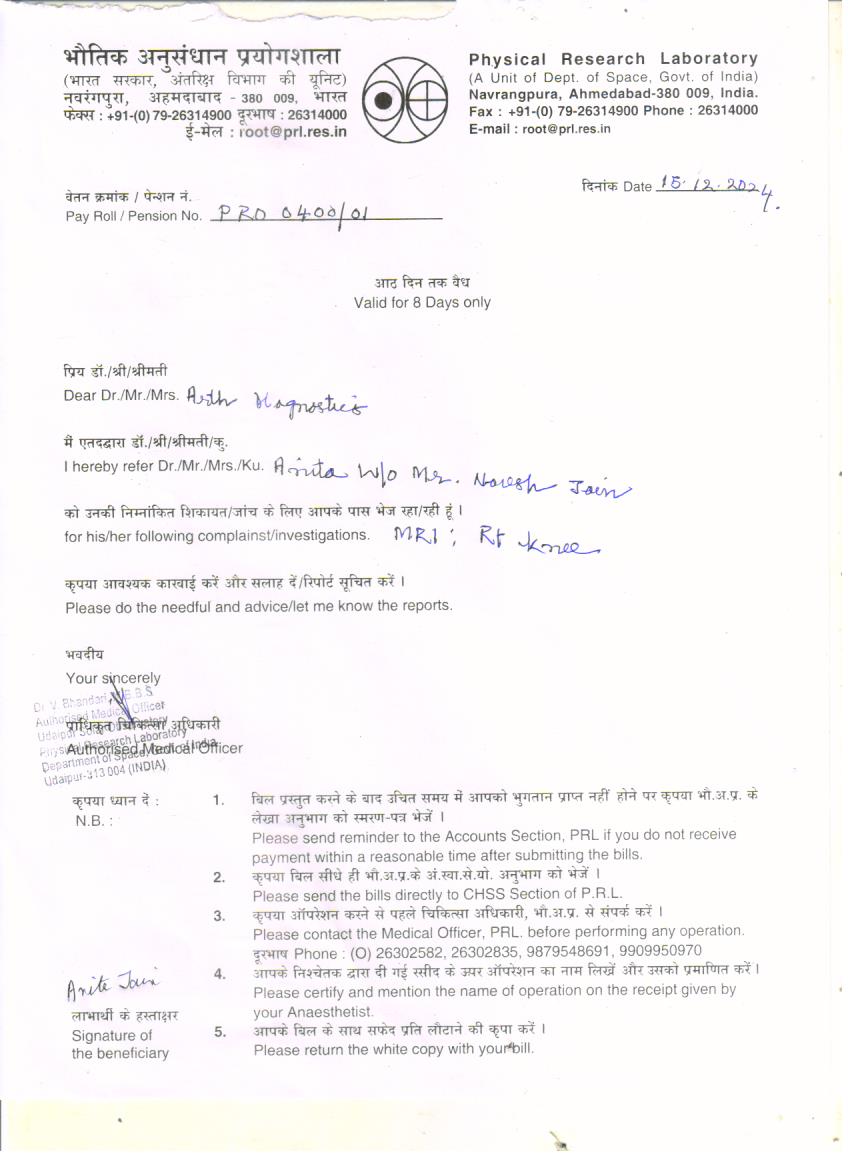 भौतिक अनुसंधान प्रयोगशाला
(भारत सरकार, अंतरिक्ष विभाग की यूनिट)
नवरंगपुरा, अहमदाबाद - 380 009, भारत
फेक्स : +91-(0) 79-26314900 दूरभाष : 26314000
ई-मेल : root@prl.res.in
Physical Research Laboratory
(A Unit of Dept. of Space, Govt. of India)
Navrangpura, Ahmedabad-380 009, India.
Fax : +91-(0) 79-26314900 Phone : 26314000
E-mail : root@prl.res.in
दिनांक Date 15.12.2024
वेतन क्रमांक / पेन्शन नं.
Pay Roll / Pension No. PRO 0400/01
आठ दिन तक वैध
Valid for 8 Days only
प्रिय डॉ./श्री/श्रीमती
Dear Dr./Mr./Mrs. Arth Diagnostics
मैं एतदद्वारा डॉ./श्री/श्रीमती/कु.
I hereby refer Dr./Mr./Mrs./Ku. Anita W/o Mr. Naresh Jain
को उनकी निम्नांकित शिकायत/जांच के लिए आपके पास भेज रहा/रही हूं ।
for his/her following complainst/investigations. MRI : Rt knee
कृपया आवश्यक कारवाई करें और सलाह दें/रिपोर्ट सूचित करें ।
Please do the needful and advice/let me know the reports.
भवदीय
Your sincerely
Dr. V. Bhandari, M.B.B.S.
Authorised Medical Officer
Udaipur Solar
Physical Research Laboratory
Department of Space, Govt. of India
Udaipur-313 004 (INDIA)
प्राधिकृत चिकित्सा अधिकारी
Authorised Medical Officer
कृपया ध्यान दें :
N.B. :
1. बिल प्रस्तुत करने के बाद उचित समय में आपको भुगतान प्राप्त नहीं होने पर कृपया भौ.अ.प्र. के
लेखा अनुभाग को स्मरण-पत्र भेजें ।
Please send reminder to the Accounts Section, PRL if you do not receive
payment within a reasonable time after submitting the bills.
2. कृपया बिल सीधे ही भौ.अ.प्र.के अं.स्वा.से.यो. अनुभाग को भेजें ।
Please send the bills directly to CHSS Section of P.R.L.
3. कृपया ऑपरेशन करने से पहले चिकित्सा अधिकारी, भौ.अ.प्र. से संपर्क करें ।
Please contact the Medical Officer, PRL. before performing any operation.
दूरभाष Phone : (O) 26302582, 26302835, 9879548691, 9909950970
4. आपके निश्चेतक द्वारा दी गई रसीद के उपर ऑपरेशन का नाम लिखें और उसको प्रमाणित करें ।
Please certify and mention the name of operation on the receipt given by
your Anaesthetist.
5. आपके बिल के साथ सफेद प्रति लौटाने की कृपा करें ।
Please return the white copy with your bill.
Anita Jain
लाभार्थी के हस्ताक्षर
Signature of
the beneficiary